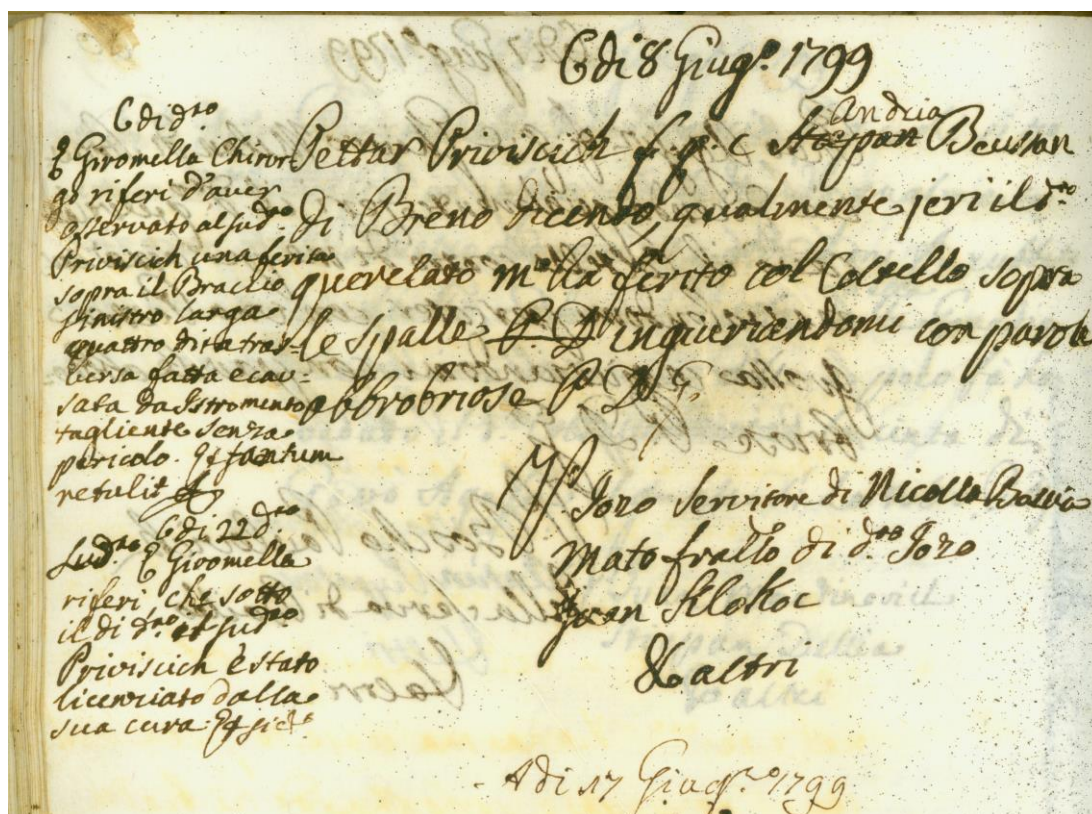 Adi 8 Giugº. 1799
Pettar Priviscich f. p. c Stepan Andria Beussan
di Breno dicendo, qualmente jeri il dtº.
querelato mº ha ferito col Coltello sopra
le spalle P. D ingiuriandomi con parole
obbrobriose P. D.
Joro Servitore di Nicolla
Mato frallo di dtº Joro
Ivan Klokoc
& altri
Adi dtº
Giromella Chirur
go riferi d'aver
osservato al sudtº
Priviscich una ferita
sopra il Bracio
sinistro larga
quattro dita tras-
versa fatta e cau-
sata da Istromento
tagliente senza
pericolo. tantum
retulit
Adi 22 dtº
Sudtº Giromella
riferi che sotto
il di dtº il sudtº
Priviscich è stato
licenziato dalla
sua cura
Adi 17 Giugº. 1799